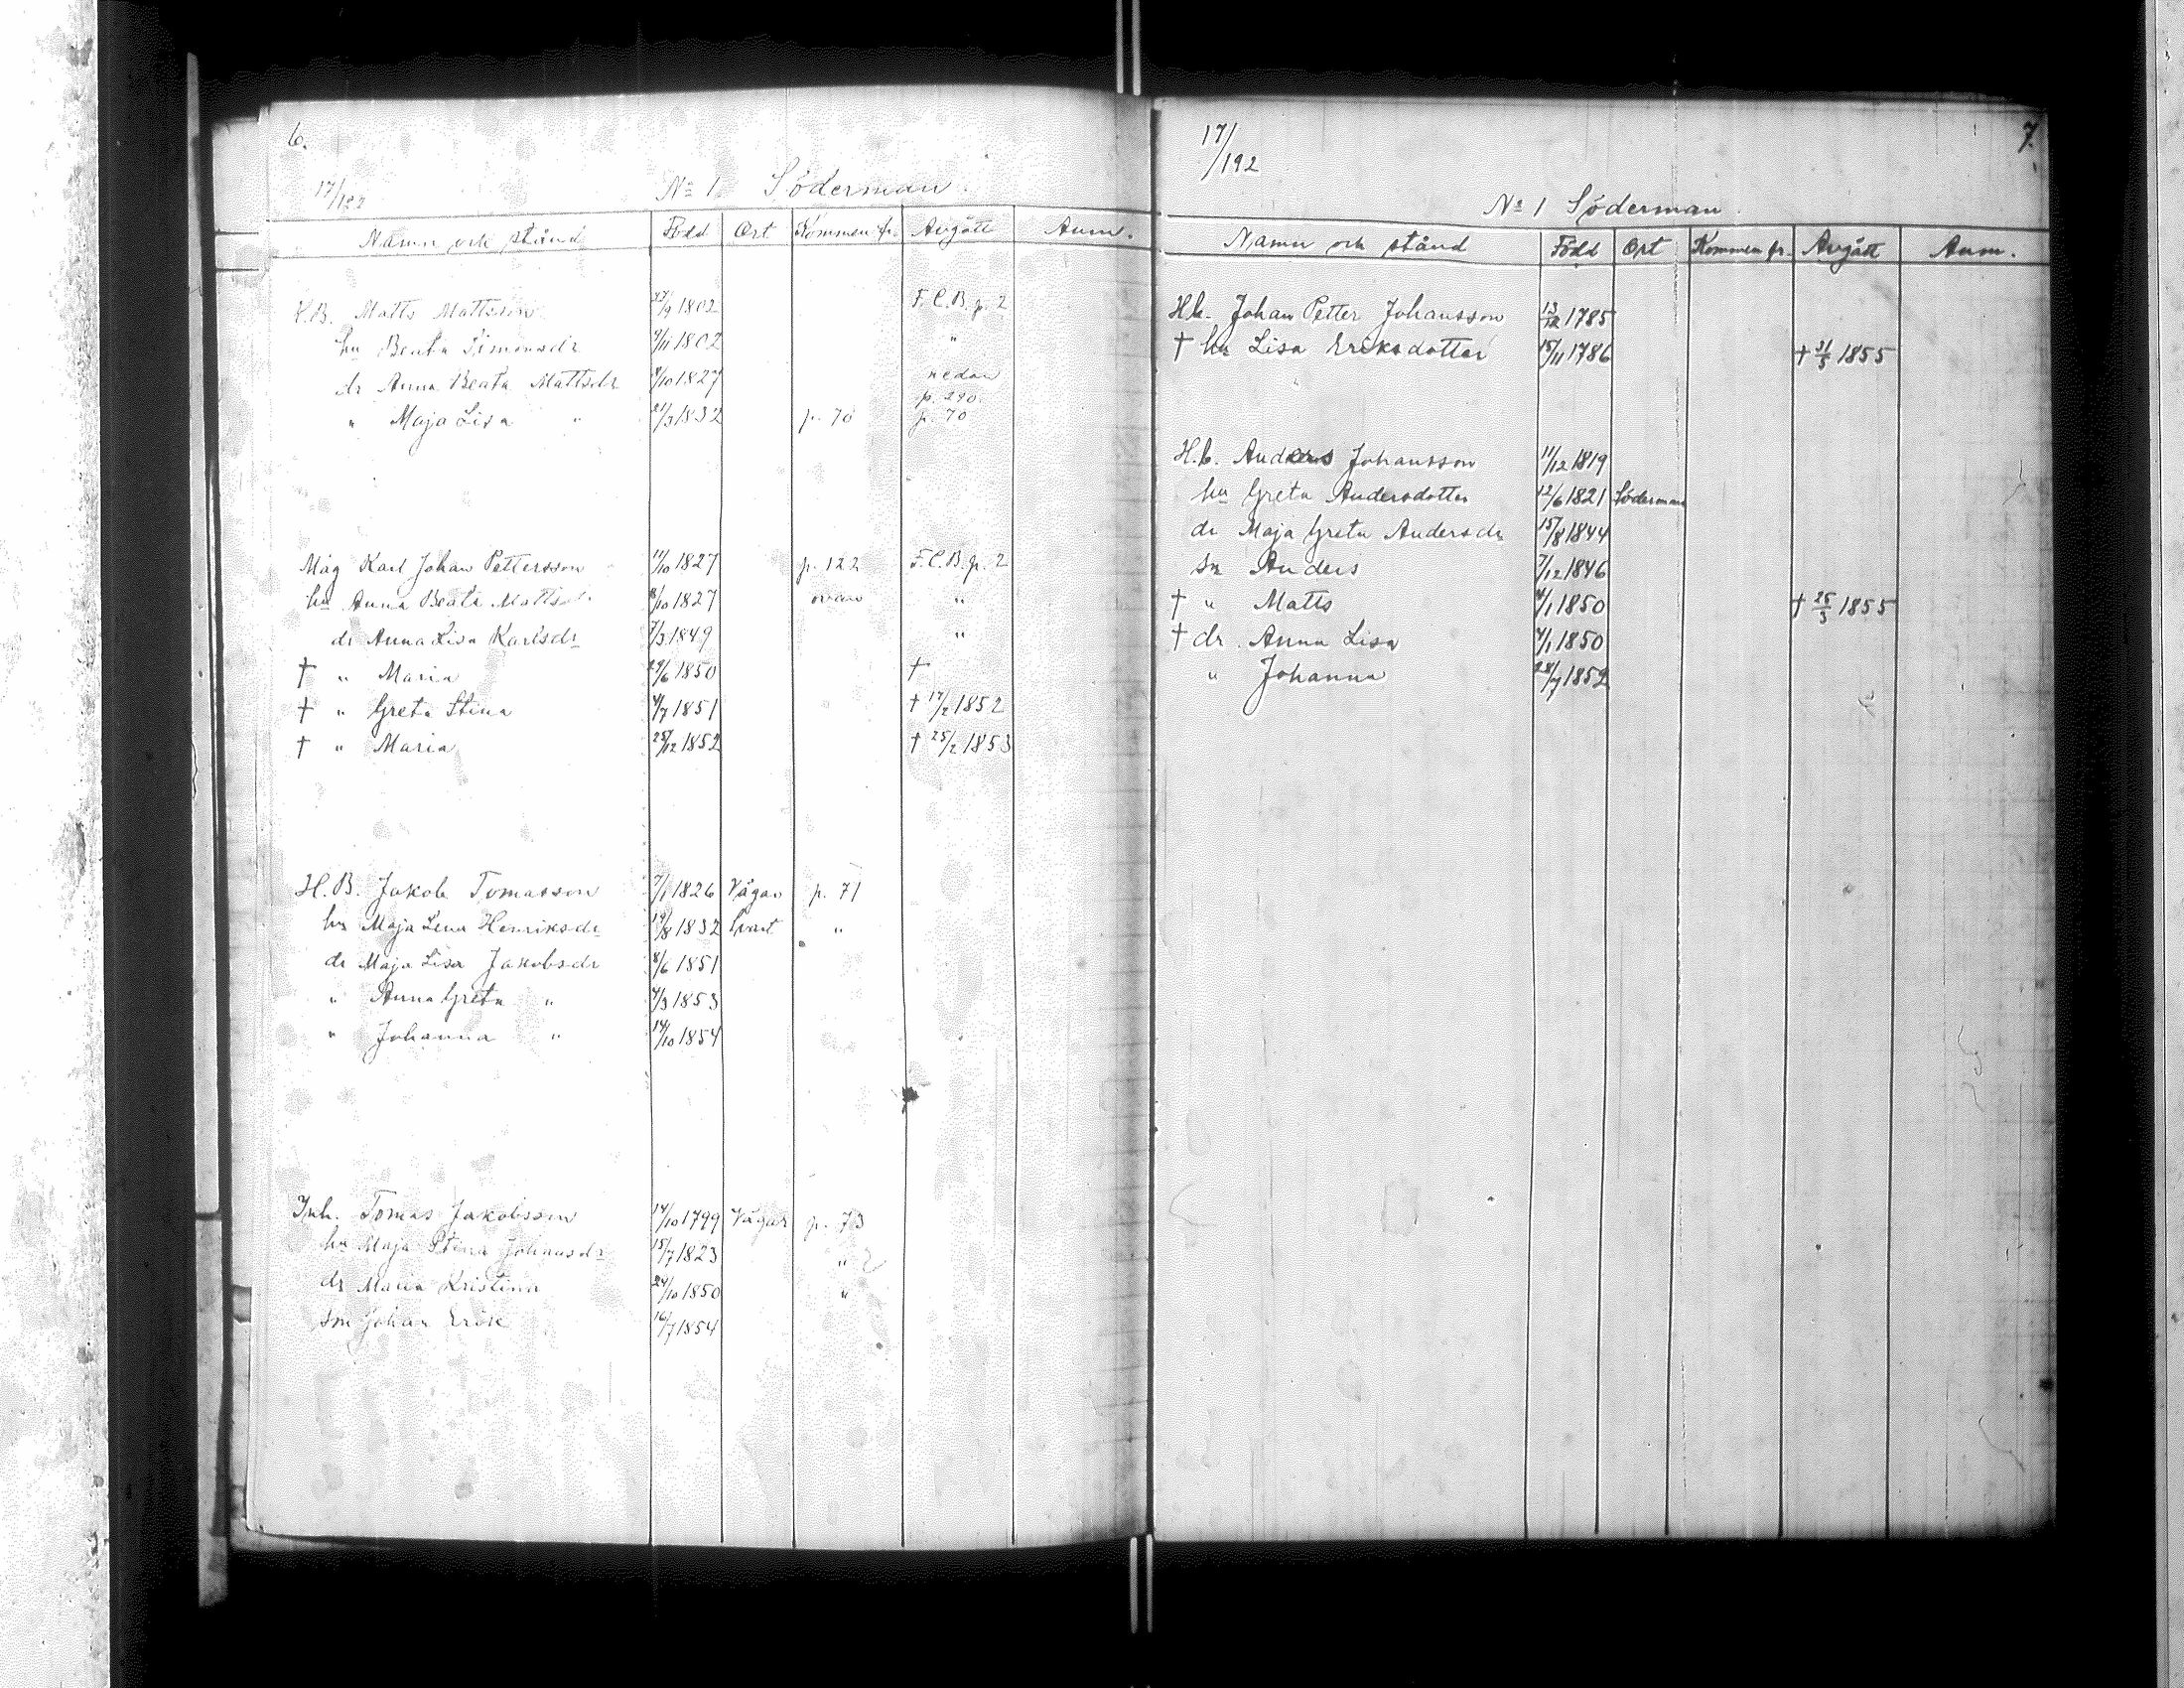 6.
17/192
No 1 Söderman.
Namn och stånd Född Ort Kommen fr. Avgått Anm.
K.B. Matts Mattsson 27/9 1802 F.C.B.p. 2
hu Beata Simonsdr 9/11 1802 "
dr Anna Beata Mattsdr 8/10 1827 nedan
p. 290.
" Maja Lisa " 21/3 1832 p. 70 p. 70
Måg Karl Johan Pettersson 11/10 1827 p. 122 F.C.B.p. 2
hu Anna Beata Mattsdr 8/10 1827 ovan "
dr Anna Lisa Karlsdr 7/3 1849 "
† " Maria 29/6 1850 †
† " Greta Stina 4/7 1851 † 17/2 1852
† " Maria 25/12 1852 † 25/2 1853
H.B. Jakob Tomasson 7/1 1826 Vågar p. 71
hu Maja Lena Henriksdr 19/8 1832 Svart "
dr Maja Lisa Jakobsdr 8/6 1851
" Anna Greta " 4/3 1853
" Johanna " 14/10 1854
Inh. Tomas Jakobsson 14/10 1799 Vågar p. 73
hu Maja Stina Johansdr 15/7 1823 "
dr Maria Kristina 24/10 1850 "
sn Johan Erik 16/7 1854
17/192
7.
No 1 Söderman.
Namn och stånd Född Ort Kommen fr. Avgått Anm.
Hb. Johan Petter Johansson 13/12 1785
† hu Lisa Eriksdotter 15/11 1786 † 31/5 1855
H.b. Anders Johansson 11/12 1819
hu Greta Andersdotter 12/6 1821 Söderman
dr Maja Greta Andersdr 15/8 1844
sn Anders 7/12 1846
† " Matts 4/1 1850 † 25/3 1855
† dr. Anna Lisa 4/1 1850
" Johanna 28/7 1852